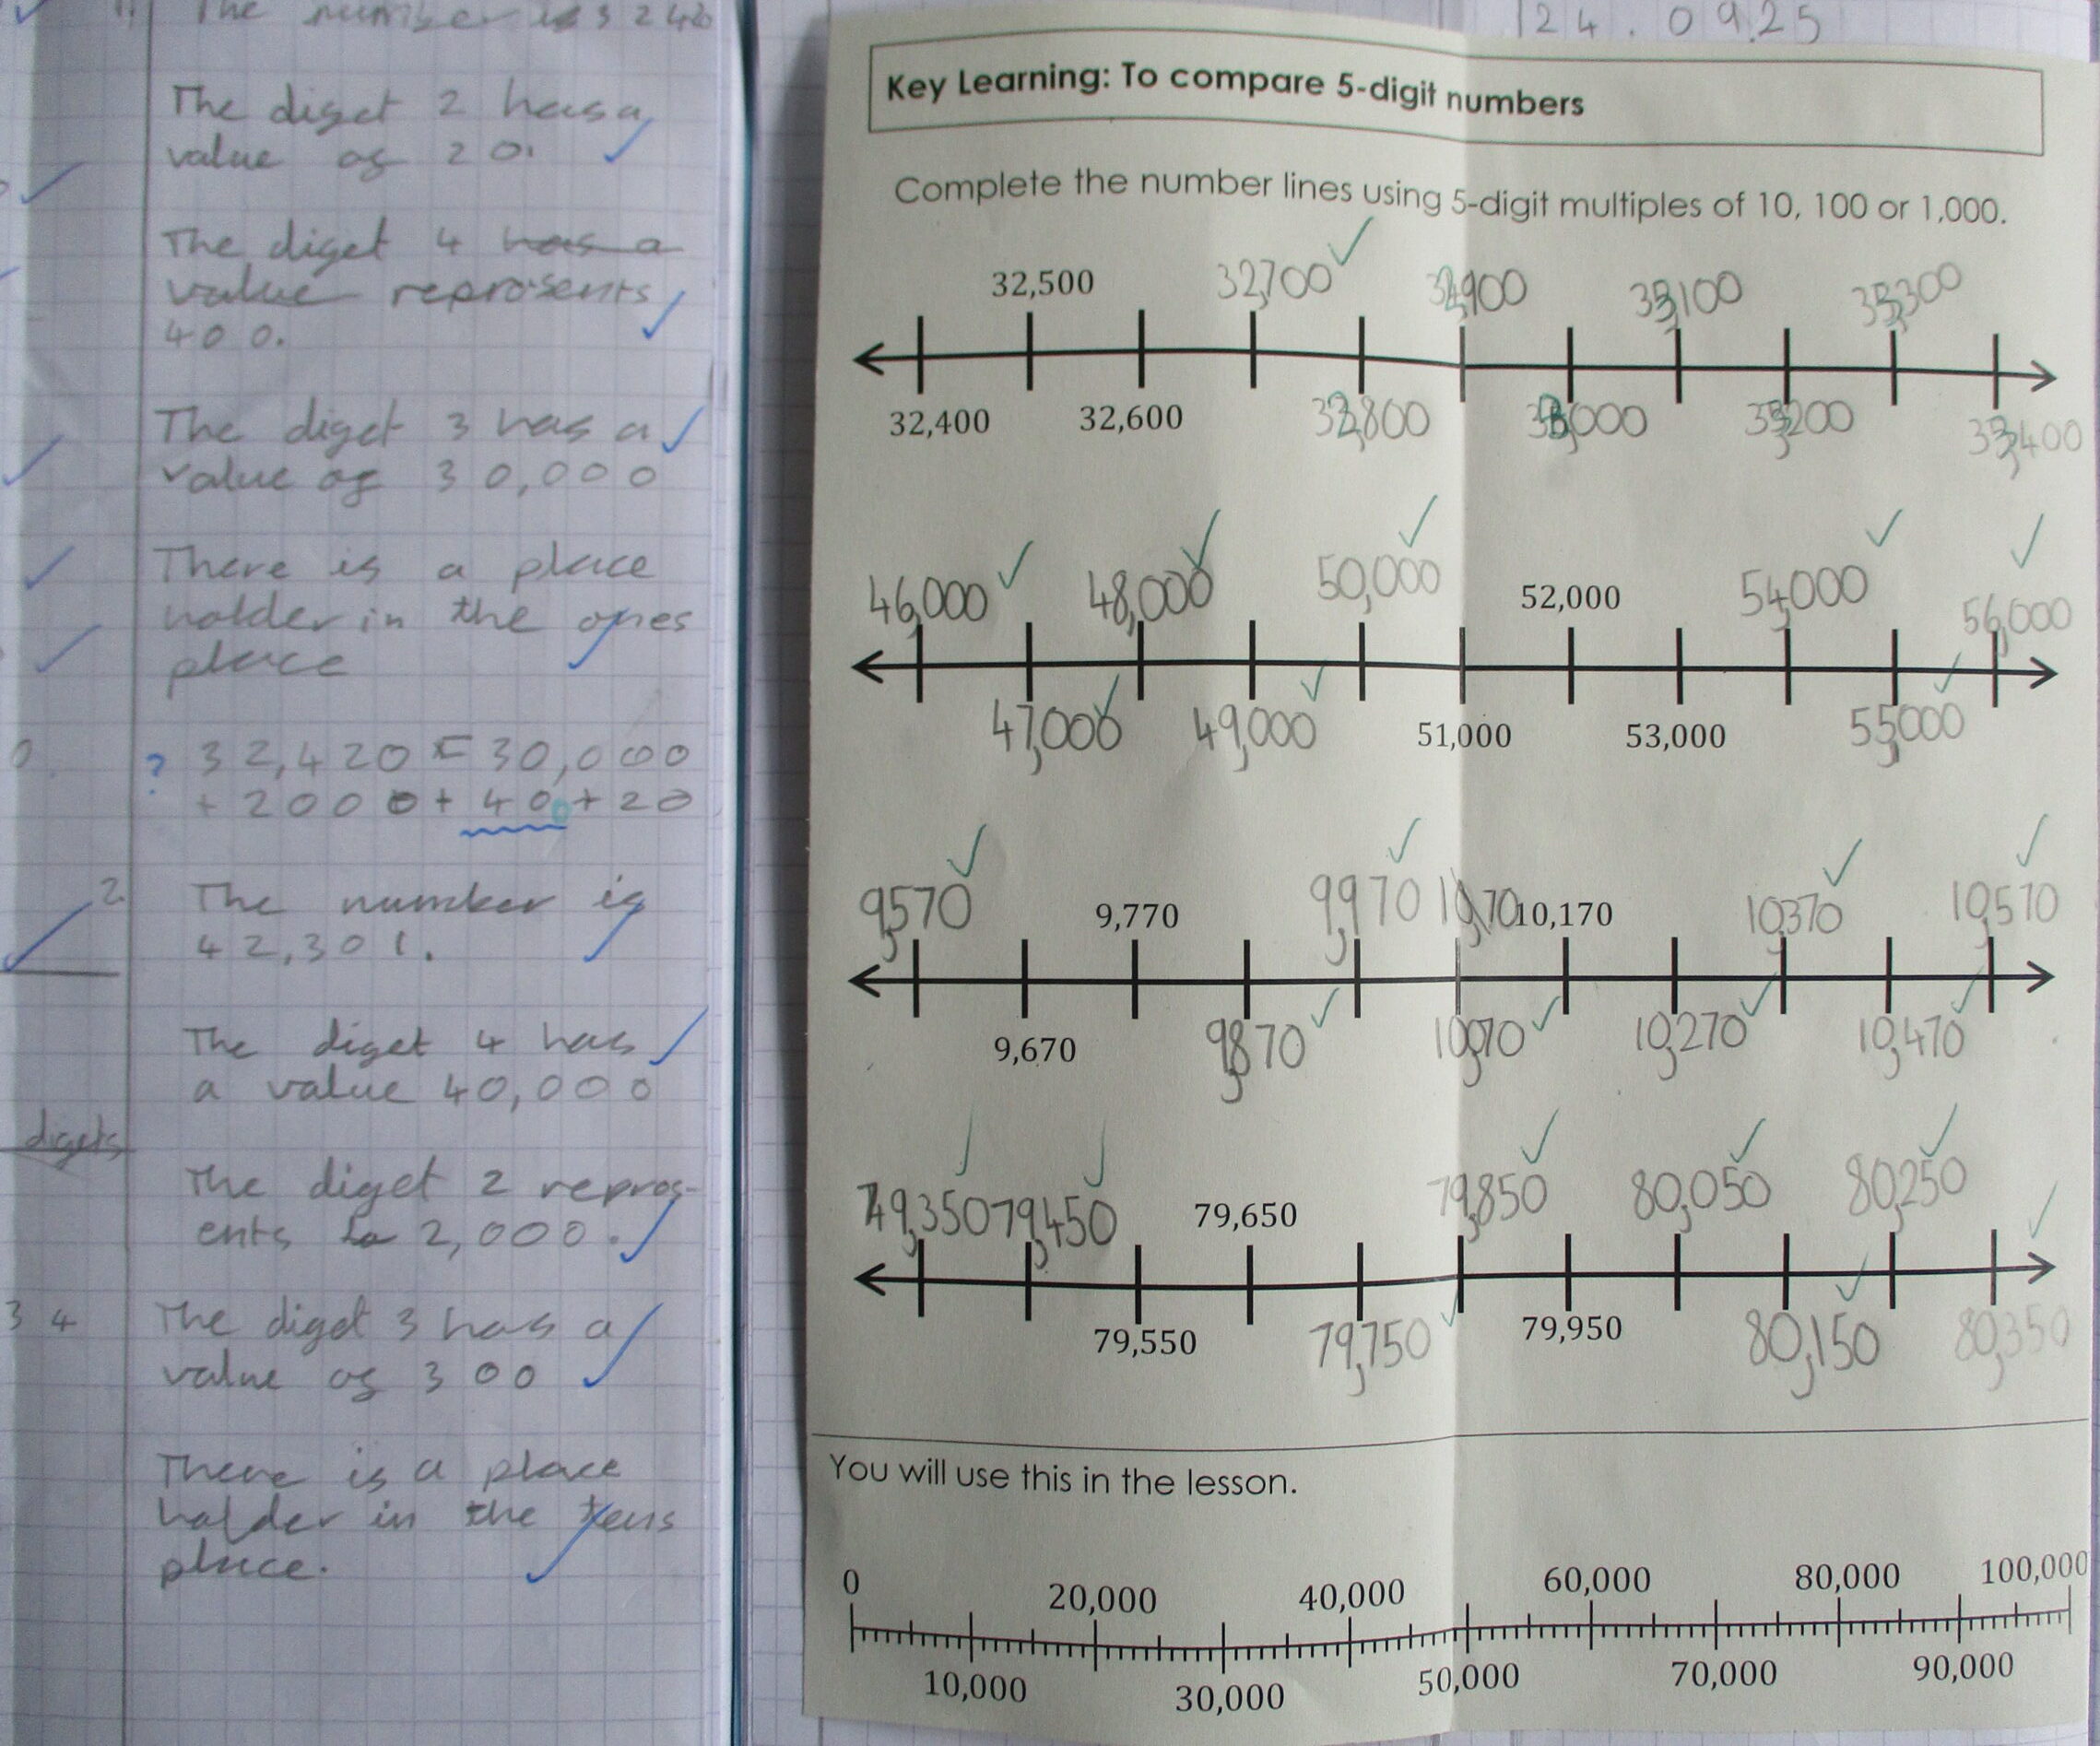 The number is 3 2 4 2 0
The diget 2 has a
value of 20.
The diget 4 has a
value reprosents
400.
The diget 3 has a
value of 30,000
There is a place
holder in the ones
place
? 32,420 = 30,000
+ 2000 + 400 + 20
2. The number is
42,301.
The diget 4 has
a value 40,000
digets
The diget 2 repros-
ents 2,000.
3 4 The diget 3 has a
value of 300
There is a place
holder in the tens
place.
24.09.25
Key Learning: To compare 5-digit numbers
Complete the number lines using 5-digit multiples of 10, 100 or 1,000.
32,500 32,700 32,900 33,100 33,300
32,400 32,600 32,800 33,000 33,200 33,400
46,000 48,000 50,000 52,000 54,000 56,000
47,000 49,000 51,000 53,000 55,000
9,570 9,770 9,970 10,170 10,370 10,570
9,670 9,870 10,070 10,270 10,470
79,350 79,450 79,650 79,850 80,050 80,250
79,550 79,750 79,950 80,150 80,350
You will use this in the lesson.
0 20,000 40,000 60,000 80,000 100,000
10,000 30,000 50,000 70,000 90,000